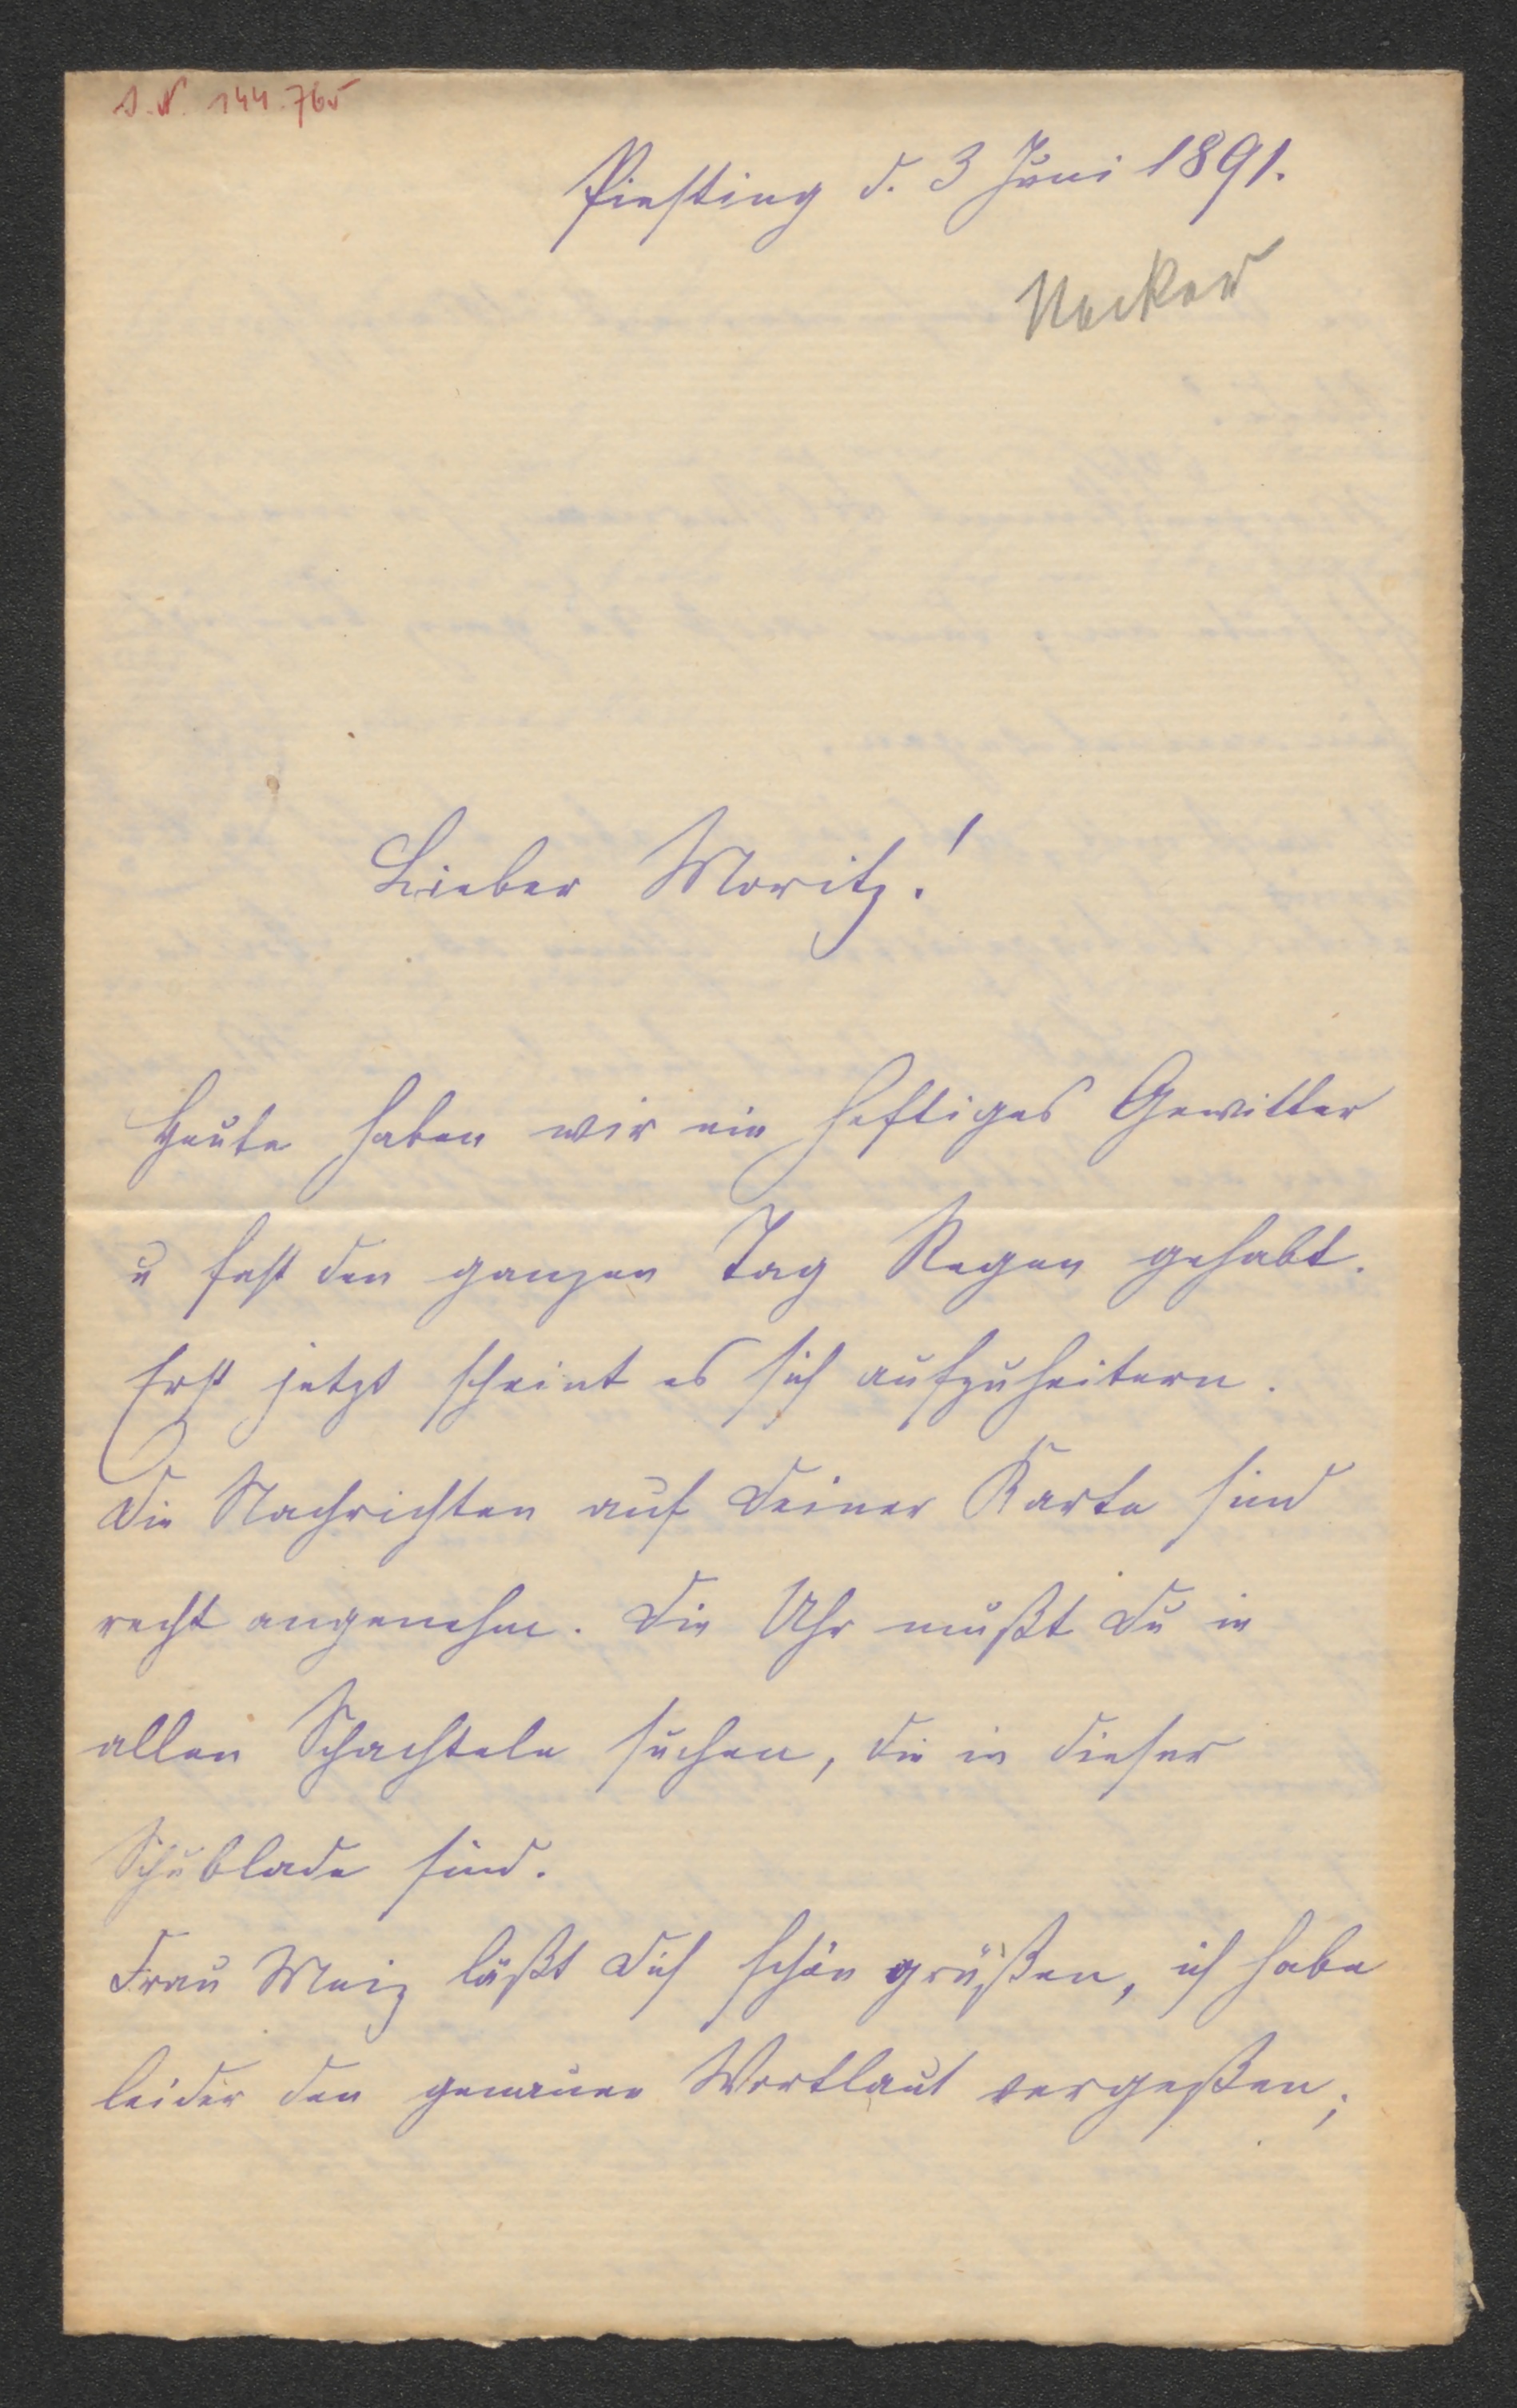 I.N. 144.765
Piesting d. 3 Juni 1891.
Necker
Lieber Moritz!
Heute haben wir ein heftiges Gewitter
u fast den ganzen Tag Regen gehabt.
Erst jetzt scheint es sich aufzuheitern.
Die Nachrichten auf Deiner Karte sind
recht angenehm. Die Uhr mußt Du in
allen Schachteln suchen, die in dieser
Schublade sind.
Frau Meiz läßt Dich schön grüßen, ich habe
leider den genauen Wortlaut vergeßen;